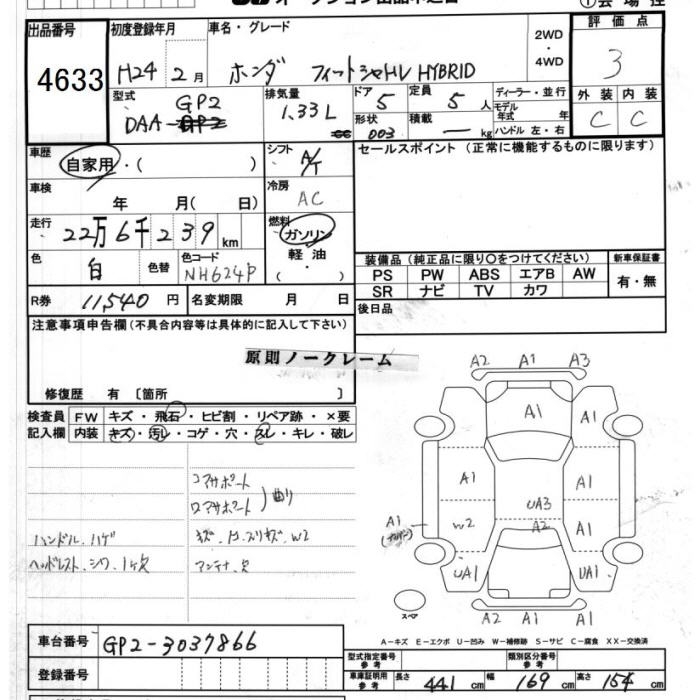 ①会場控
出品番号 4633
初度登録年月 H24 2月
車名・グレード ホンダ フィットシャトルHV HYBRID
2WD・4WD
評価点 3
外装 内装
C C
型式 DAA-GP2
排気量 1.33L cc
ドア 5 定員 5人
形状 003 積載 ー kg
ディーラー・並行
モデル年式 年
ハンドル 左・右
車歴 自家用・( )
シフト A/T
セールスポイント(正常に機能するものに限ります)
車検 年 月( 日)
冷房 AC
走行 22万6千239km
燃料 ガソリン 軽油・( )
色 白 色替 色コード NH624P
装備品(純正品に限り○をつけてください) 新車保証書
PS PW ABS エアB AW 有・無
SR ナビ TV カワ
R券 11,540円 名変期限 月 日
後日品
注意事項申告欄(不具合内容等は具体的に記入して下さい)
原則ノークレーム
修復歴 有〔箇所 〕
検査員 FW キズ・飛石・ヒビ割・リペア跡・×要
記入欄 内装 キズ・汚レ・コゲ・穴・スレ・キレ・破レ
コアサポート
ロアサポート 曲り
ハンドル.ハゲ
ヘッドレスト.シワ.1ヶ欠
アンテナ.欠
A2 A1 A3
A1 A1
A1 A1
UA3
A1 W2 A2 A1
UA1 UA1
スペア
A2 A1 A1
A-キズ E-エクボ U-凹み W-補修跡 S-サビ C-腐食 XX-交換済
車台番号 GP2-3037866
型式指定番号 参考 類別区分番号 参考
登録番号
車庫証明用 参考 長さ 441cm 幅 169cm 高さ 154cm